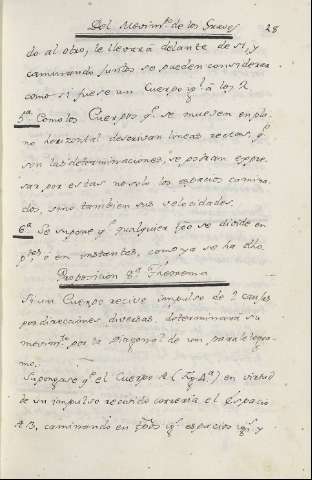 Del Movim.to de los Graves 28
do al otro, le llevará delante de si, y
caminando juntos se pueden considerar
como si fuese un Cuerpo ygl à los 2
5.a Como los Cuerpos q.e se mueven en pla-
no horizontal describan lineas rectas, q.e
son las determinaciones, se podran expre-
sar por estas no solo los espacios camina-
dos, sino tambien sus velocidades.
6.a Se supone q.e qualquier tpo se divide en
p.tes ò en instantes, como ya se ha dho.
Proposicion 8.a Theorema
Si un Cuerpo recive impulso de 2 causas
por direcciones diversas, determinará su
movim.to por la diagonal de un paralelogra-
mo.
Supongase q.e el Cuerpo A (Fig 4.a) en virtud
de un impulso recivido correria el Espacio
AB, caminando en tpos ygl espacios ygl y